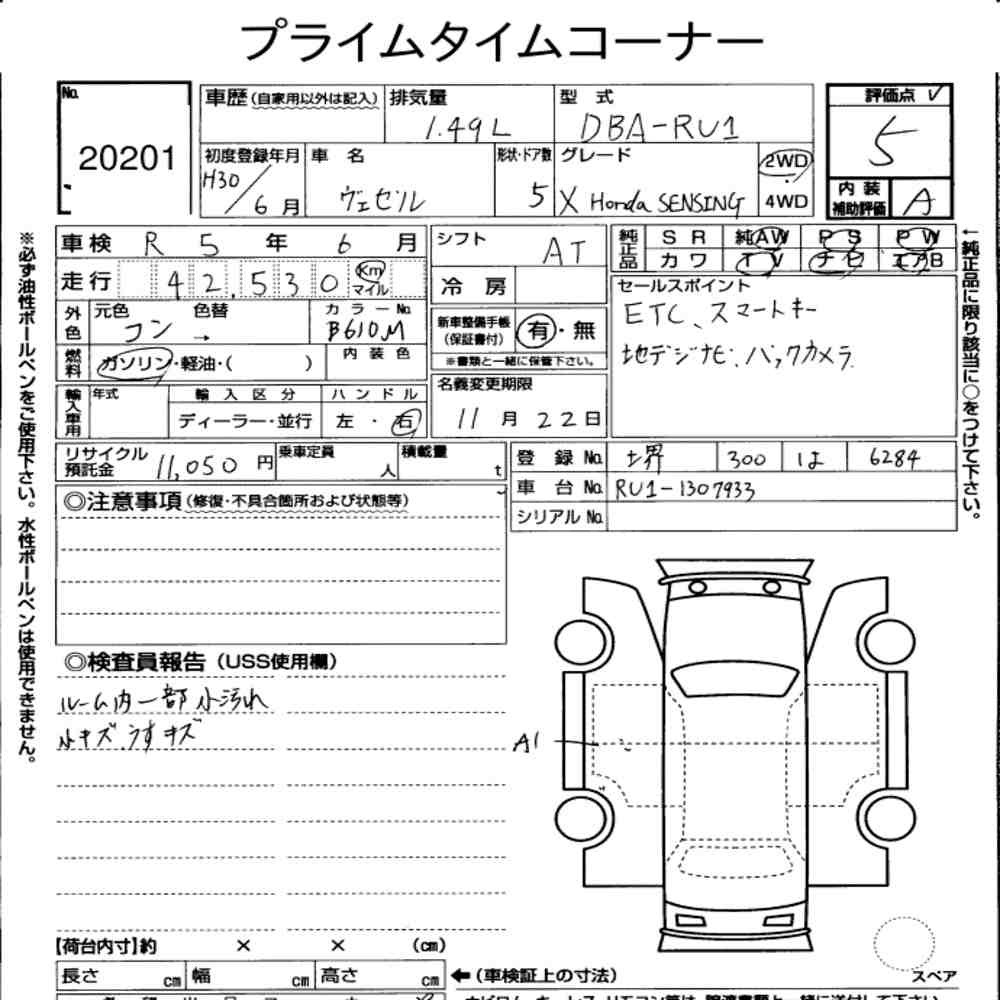 プライムタイムコーナー
No. 20201
車歴(自家用以外は記入) 排気量 1.49L
型式 DBA-RU1
評価点 ✓ 5
初度登録年月 H30/6月
車名 ヴェゼル
形状・ドア数 5
グレード X Honda SENSING
2WD 4WD
内装補助評価 A
車検 R 5 年 6 月
シフト AT
純正品 SR 純AW PS PW
カワ TV ナビ エアB
走行 42,530 Km マイル
冷房
セールスポイント
ETC、スマートキー
地デジナビ、バックカメラ
外色 元色 コン → 色替 カラーNo. B610M
新車整備手帳(保証書付) 有・無
※書類と一緒に保管下さい。
燃料 ガソリン・軽油・( ) 内装色
名義変更期限
11月22日
輸入車用 年式 輸入区分 ハンドル
ディーラー・並行 左・右
リサイクル預託金 11,050円 乗車定員 人 積載量 t
登録No. 堺 300 は 6284
車台No. RU1-1307933
シリアルNo.
◎注意事項(修復・不具合箇所および状態等)
◎検査員報告(USS使用欄)
ルーム内一部小汚れ
小キズ、うすキズ
A1
【荷台内寸】約 × × (cm)
長さ cm 幅 cm 高さ cm
←(車検証上の寸法)
スペア
※必ず油性ボールペンをご使用下さい。水性ボールペンは使用できません。
←純正品に限り該当に○をつけて下さい。